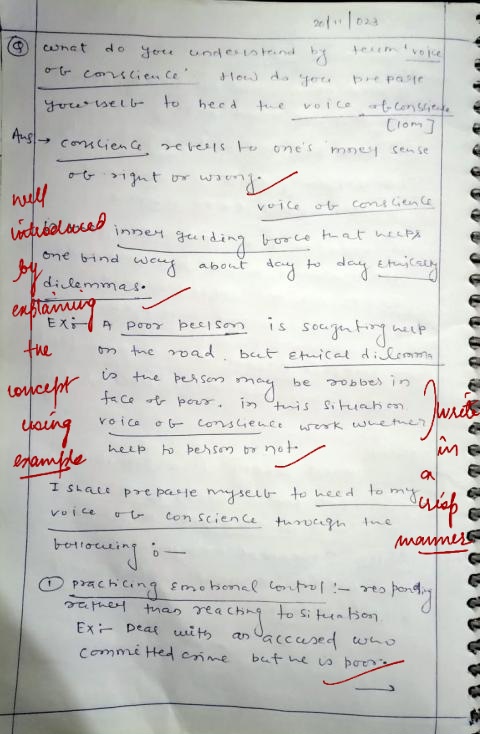 20/11/023
Q What do you understand by term 'voice
of conscience'. How do you prepare
yourself to heed the voice of conscience
[10m]
Ans → conscience refers to one's inney sense
of right or wrong.
voice of conscience
inner guiding force that helps
one find way about day to day ethically
dilemmas.
Ex:- A poor peerson is soughting help
on the road. but ethical dilemma
is the person may be robber in
face of poor. in this situation
voice of conscience work whether
help to person or not.
I shall prepare myself to heed to my
voice of conscience through the
following :-
① practicing Emotional control :- responding
rather than reacting to situation.
Ex:- Deal with an accused who
committed crime but he is poor.
→
well
introduced
by
explaining
the
concept
using
example
write
in
a
crisp
manner